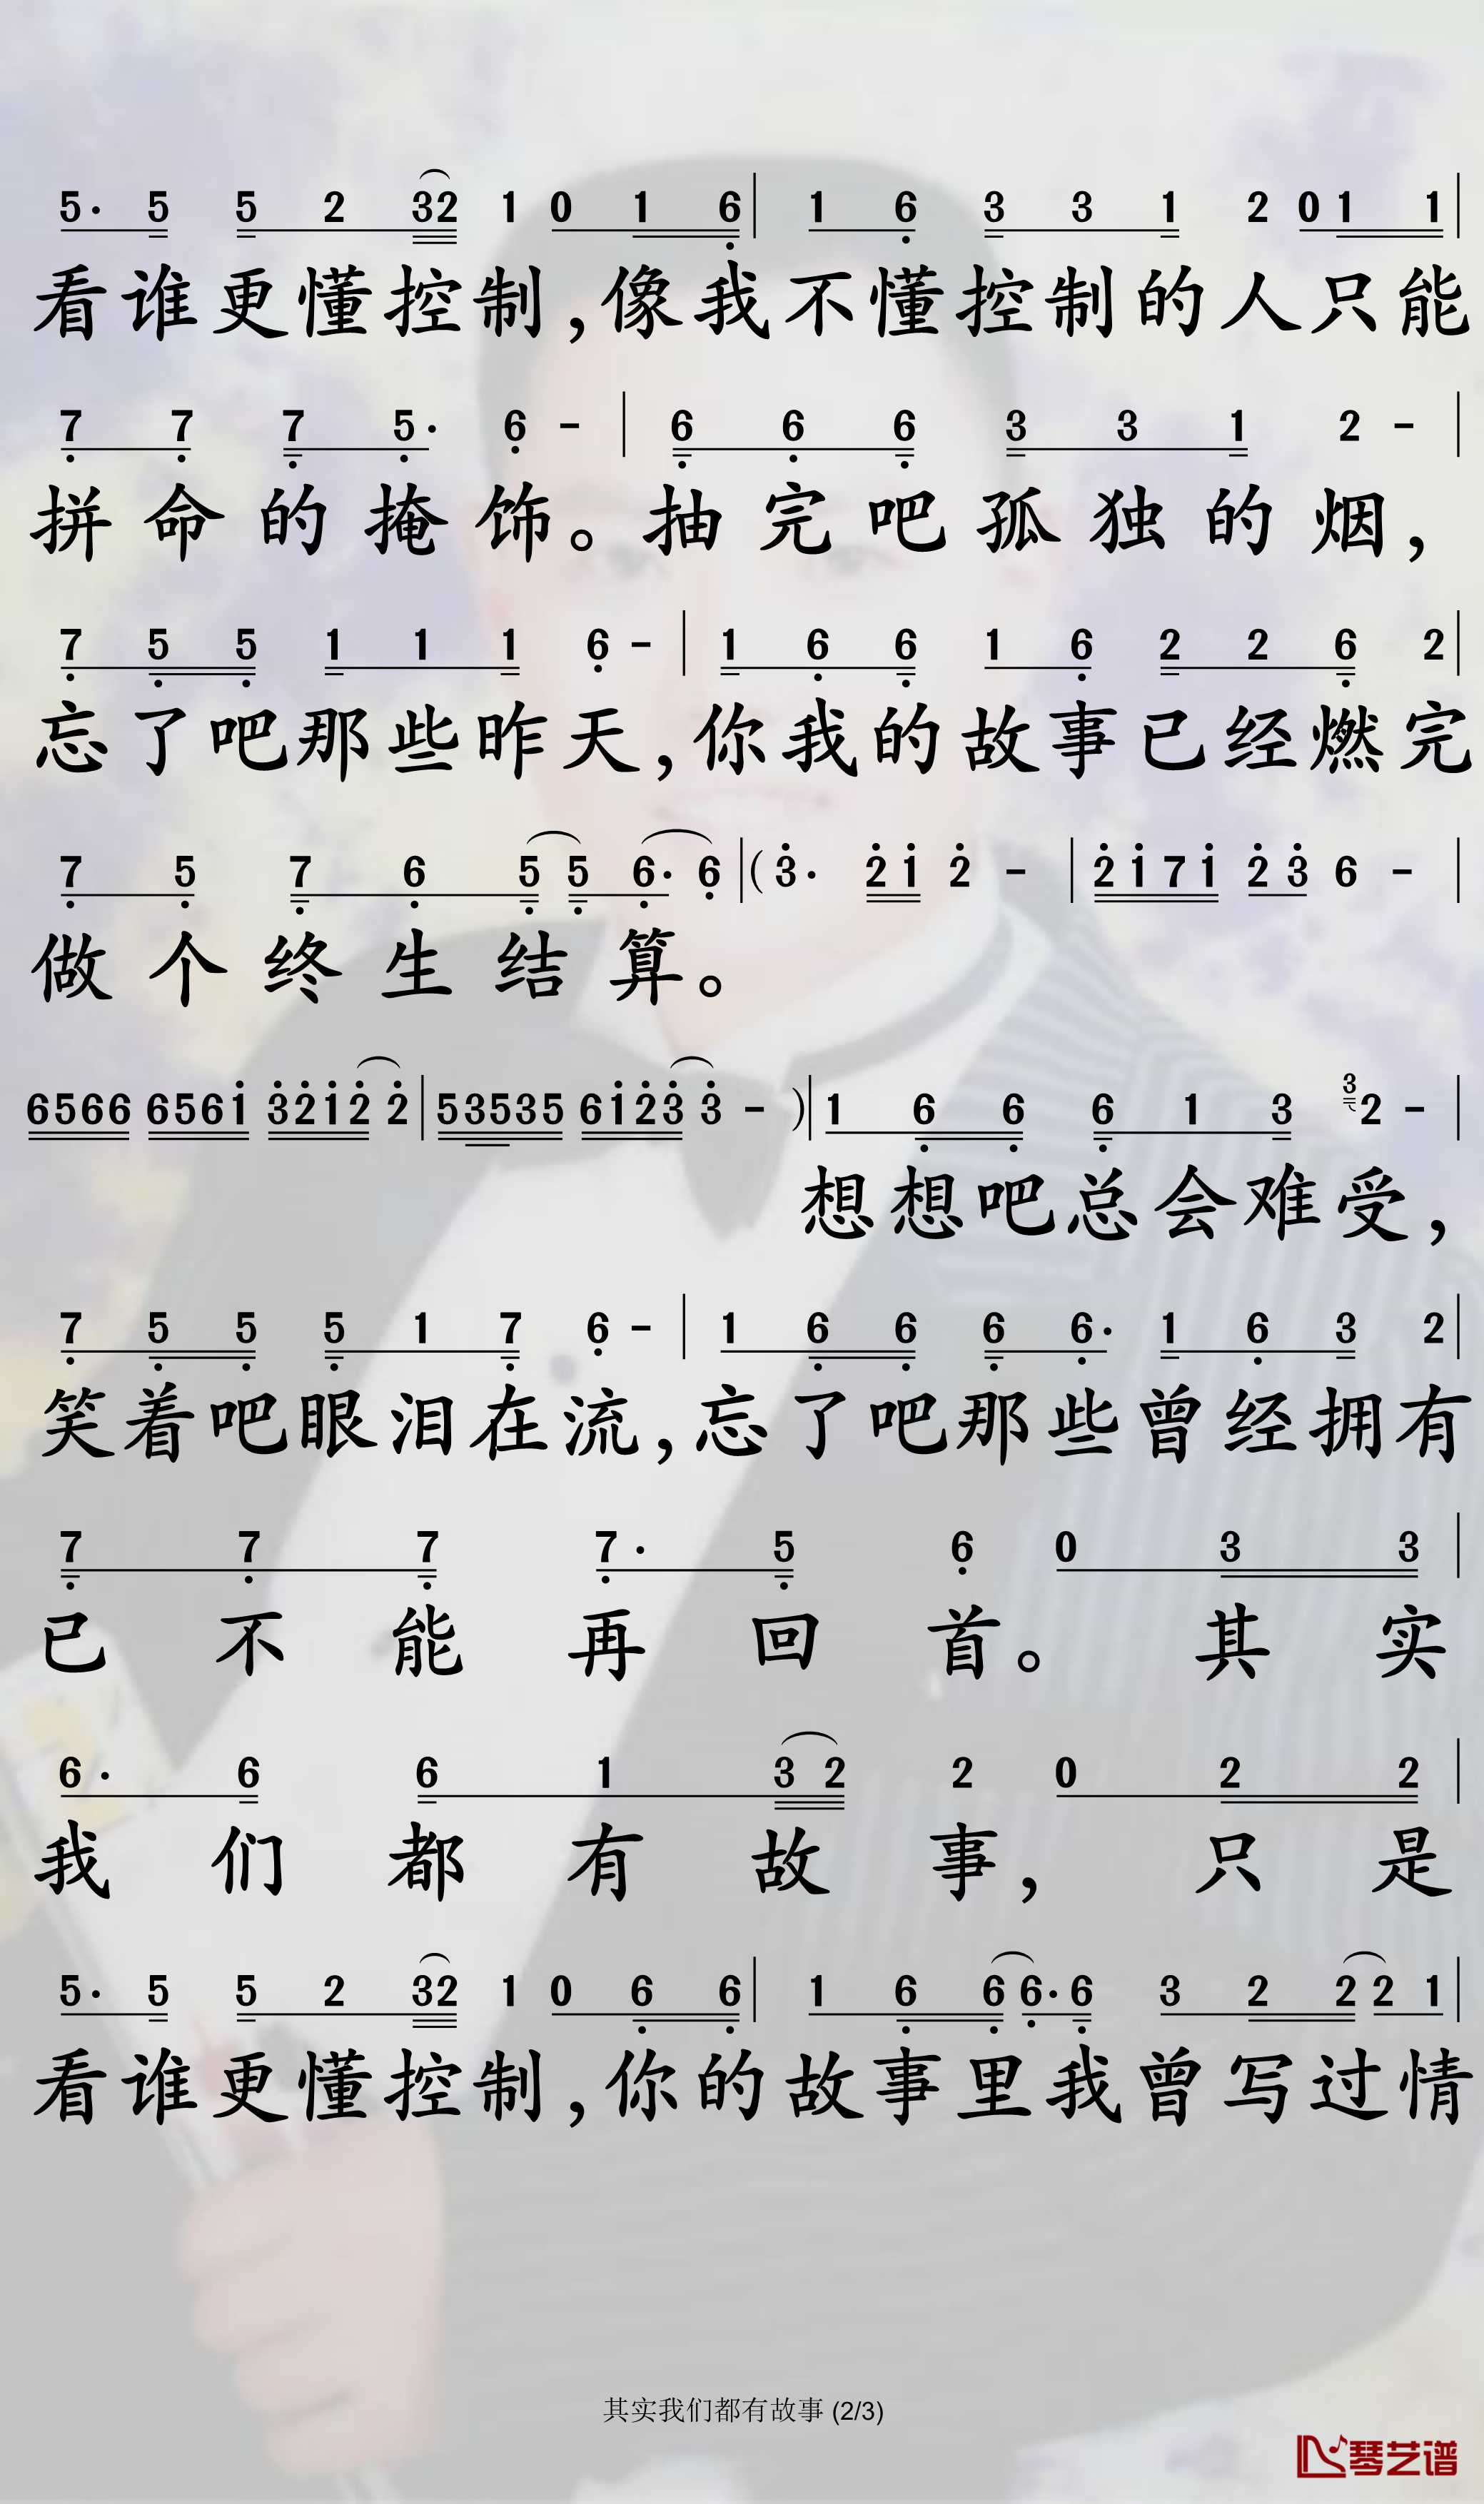 5· 5 5 2 32 1 0 1 6 | 1 6 3 3 1 2 0 1 1 |
看谁更懂控制,像我不懂控制的人只能
7 7 7 5· 6 - | 6 6 6 3 3 1 2 - |
拼命的掩饰。抽完吧孤独的烟,
7 5 5 1 1 1 6 - | 1 6 6 1 6 2 2 6 2 |
忘了吧那些昨天,你我的故事已经燃完
7 5 7 6 5 5 6· 6 | ( 3· 2 1 2 - | 2 1 7 1 2 3 6 - |
做个终生结算。
6566 6561 3212 2 | 53535 6123 3 - ) | 1 6 6 6 1 3 3 2 - |
想想吧总会难受,
7 5 5 5 1 7 6 - | 1 6 6 6 6· 1 6 3 2 |
笑着吧眼泪在流,忘了吧那些曾经拥有
7 7 7 7· 5 6 0 3 3 |
已不能再回首。其实
6· 6 6 1 3 2 2 0 2 2 |
我们都有故事,只是
5· 5 5 2 32 1 0 6 6 | 1 6 6 6· 6 3 2 2 2 1 |
看谁更懂控制,你的故事里我曾写过情
其实我们都有故事 (2/3)
琴艺谱